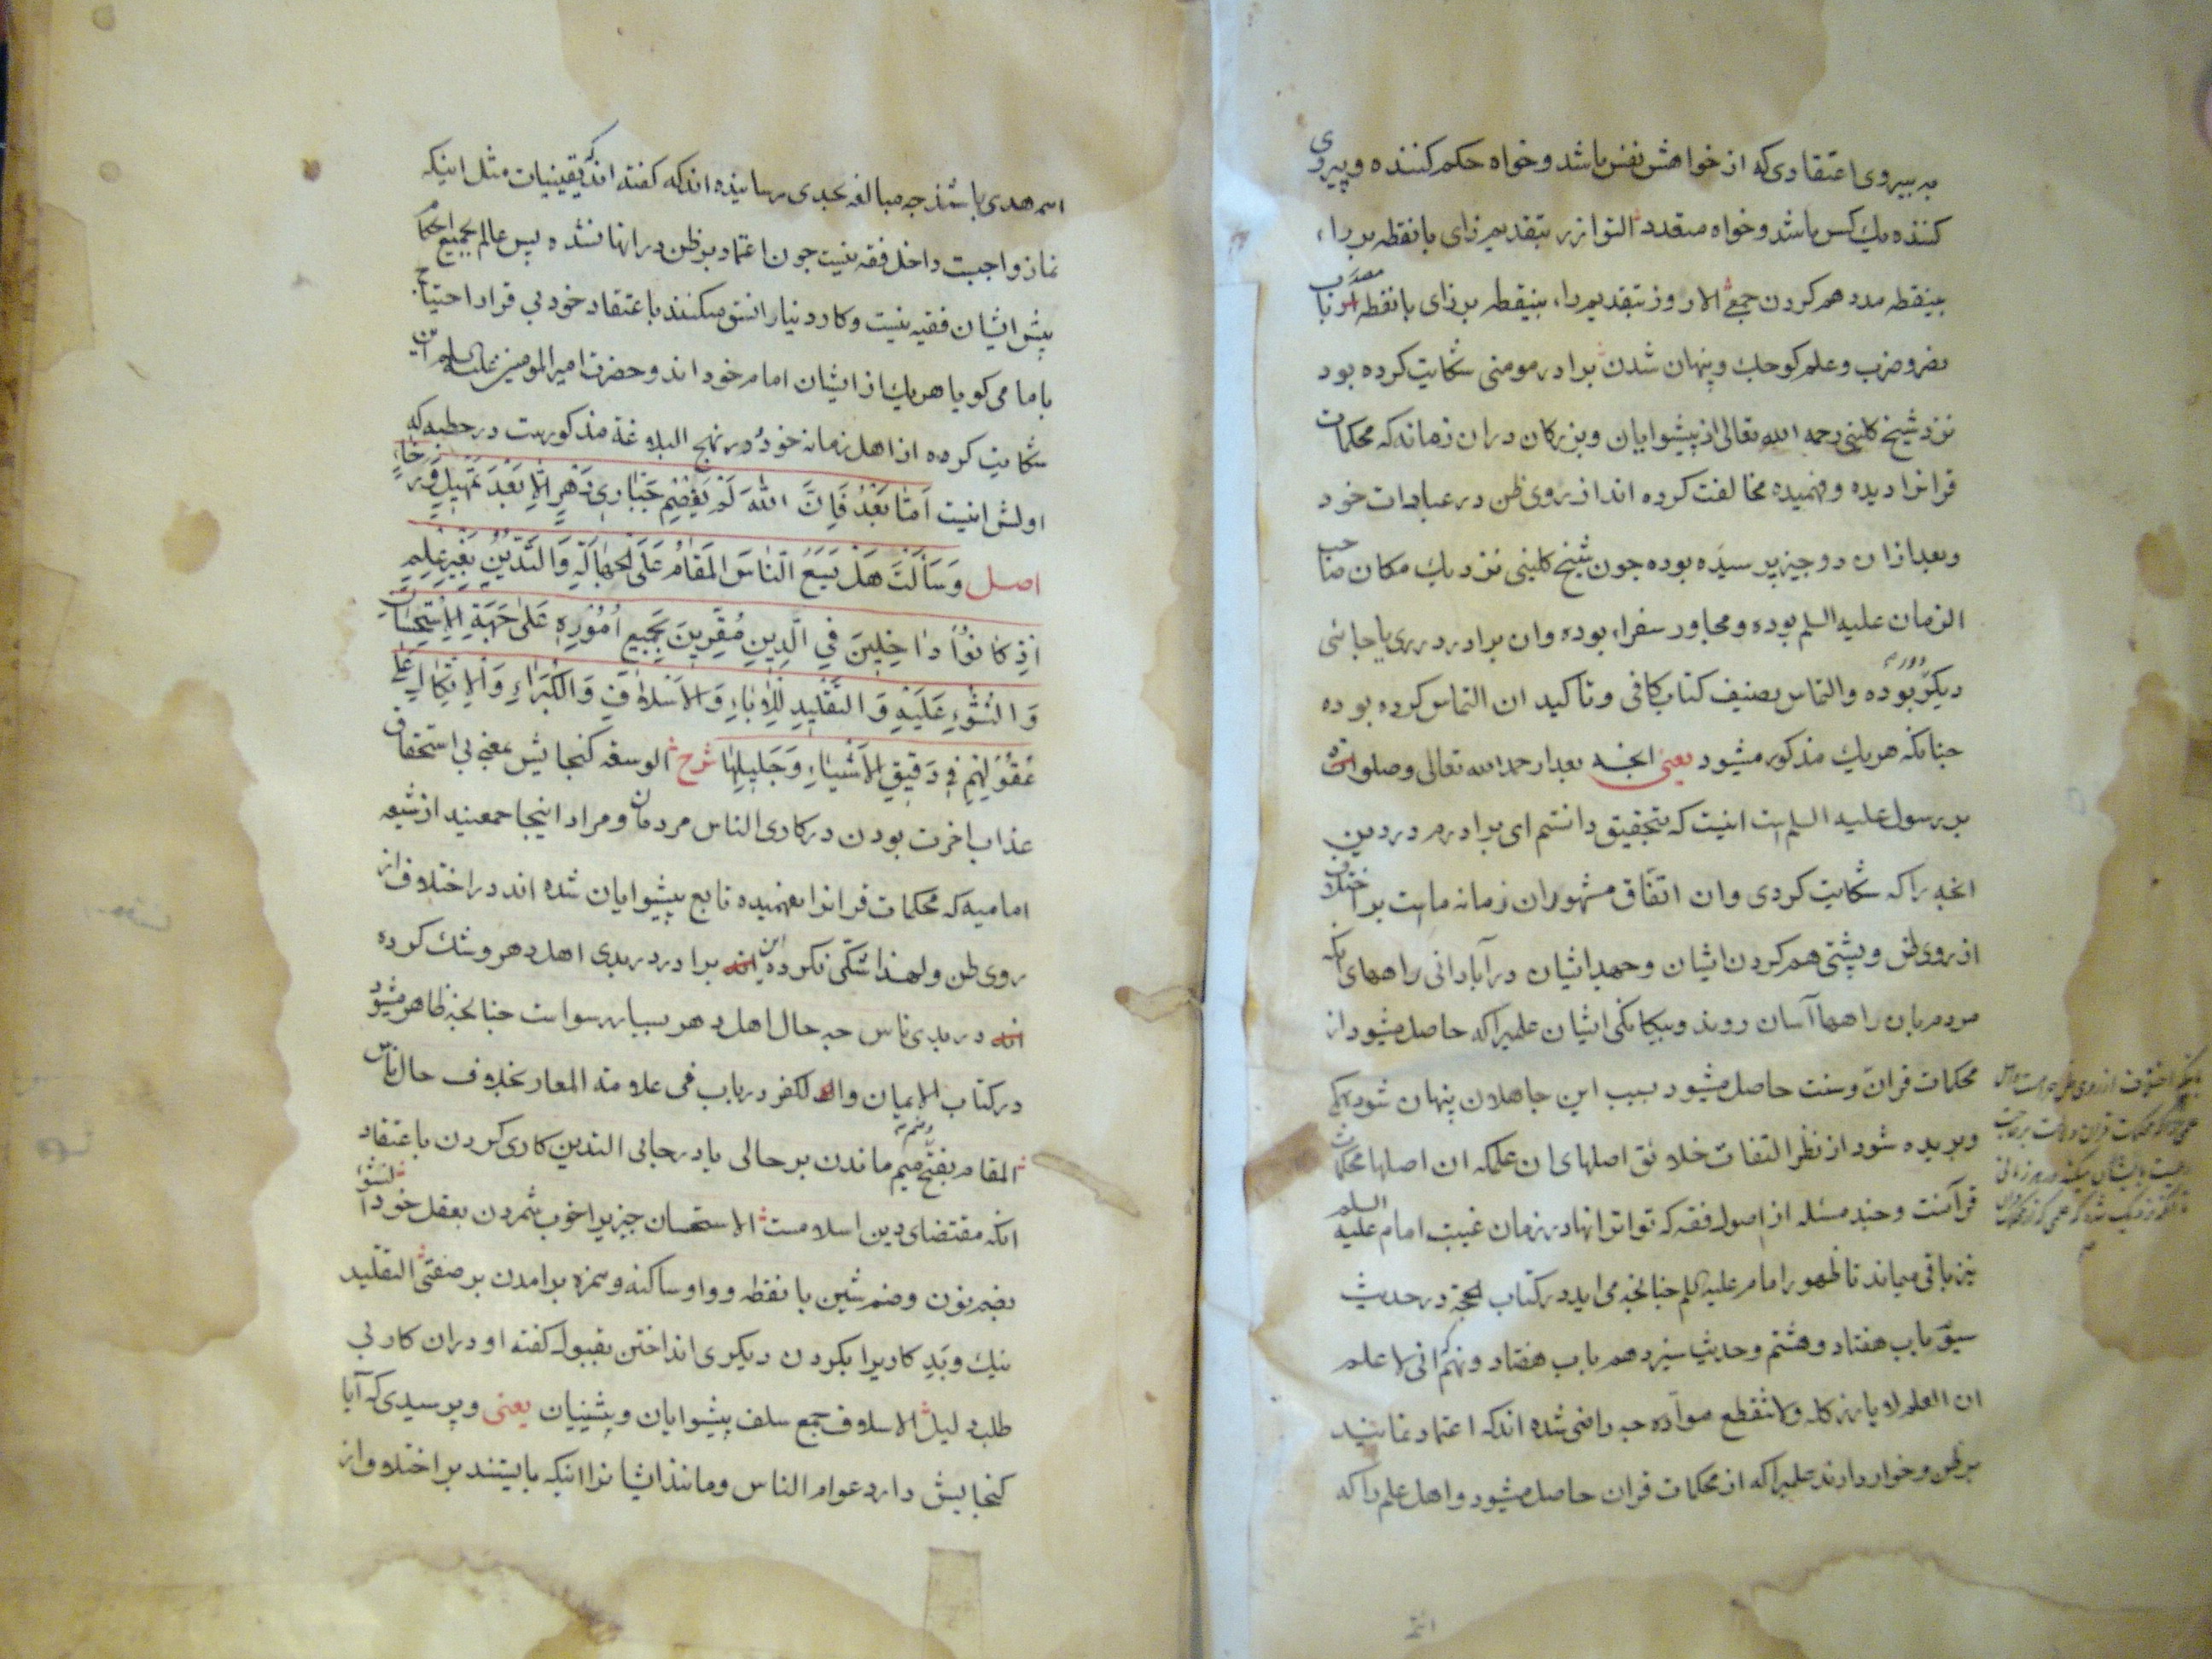 به پیروی اعتقادی که از خواهش نفس باشد و خواه حکم کننده و پیروی
کننده یك کس باشد و خواه متعدد التوازر بتقدیم زای با نقطه بر راء
بینقطه مدد هم کردن جمیع الارز بتقدیم راء بینقطه بر زای با نقطه
بضر و ضرب و علم کوچك و پنهان شدن برادر مومنی شکایت کرده بود
نزد شیخ کلینی رحمه الله تعالی از پیشوایان و بزرکان در ان زمانه که محکمات
قرانرا دیده و فهمیده مخالفت کرده اند از روی ظن در عبادات خود
و بعد ازان دو چیز پرسیده بوده چون شیخ کلینی نزدیك مکان صاحب
الزمان علیه السلم بوده و مجاور سفراء بوده و ان برادر در ری یا جائی
دیکر بوده و التماس تصنیف کتاب کافی و تاکید ان التماس کرده بوده
چنانکه هر یك مذکور میشود یعنی انچه بعد از حمد الله تعالی و صلوات
بر رسول علیه السلم است اینست که بتحقیق دانستم ای برادرم در دین
انچه را که شکایت کردی و ان اتفاق مشهوران زمانه ماست بر اختلاف
از روی ظن و پشتی هم کردن ایشان و جهد ایشان در آبادانی راههای انکه
مردم بان راهها آسان روند و بیکانکی ایشان علمیرا که حاصل میشود از
محکمات قران و سنت حاصل میشود بسبب این جاهلان پنهان شود همکی
و بریده شود از نظر التفات خلائق اصلهای ان علمکه ان اصلها محکمات
قرآنست و چند مسئله از اصول فقه که تواتر انها در زمان غیبت امام علیه السلم
نیز باقی میماند تا ظهور امام علیه السلم چنانچه می اید در کتاب الحجة در حدیث
سیوم باب هفتاد و هشتم و حدیث سیزدهم باب هفتاد و نهم که انی لاعلم
ان العلم لا یارز کله و لا ینقطع موادّه چه راضی شده اند که اعتماد نمایند
بر ظن و خوار دارند علمیرا که از محکمات قران حاصل میشود و اهل علم را که
ائمه هدی باشند چه مبالغه بحدی رسانیده اند که کفته اند که یقینیات مثل اینکه
نماز واجبست داخل فقه نیست چون اعتماد بر ظن در انها نشده پس عالم بجمیع احکام
پیش ایشان فقیه نیست و کار دنیا را نسق میکنند باعتقاد خود بی قرار احتیاج
بامامی کویا هر یك از ایشان امام خود اند و حضرت امیر المومنین علیه السلم این
شکایت کرده از اهل زمانه خود و در نهج البلاغة مذکورست در خطبه که
اولش اینست اَمَّا بَعْدُ فَاِنَّ اللهَ لَمْ یَقْصِمْ جَبَّارِی دَهْرٍ اِلَّا بَعْدَ تَمْهِیلٍ وَ رَخَاءٍ
اصل وَسَاَلْتَ هَلْ یَسَعُ النَّاسَ الْمَقَامُ عَلَی الْجَهَالَةِ وَالتَّدَیُّنُ بِغَیْرِ عِلْمٍ
اِذْ کَانُوا دَاخِلِینَ فِی الدِّینِ مُقِرِّینَ بِجَمِیعِ اُمُورِهِ عَلَی جِهَةِ الْاِسْتِحْسَانِ
وَالنُّشُوءِ عَلَیْهِ وَالتَّقْلِیدِ لِلْآبَاءِ وَالْاَسْلَافِ وَالْکُبَرَاءِ وَالْاِتِّکَالِ عَلَی
عُقُولِهِمْ فِی دَقِیقِ الْاَشْیَاءِ وَجَلِیلِهَا شرح الوسعه کنجایش بمعنی بی استحقاق
عذاب اخرت بودن در کاری الناس مردمان و مراد اینجا جمعیند از شیعه
امامیه که محکمات قرانرا نفهمیده تابع پیشوایان شده اند در اختلاف از
روی ظن و لهذا شکی نکرده این برادر در بدی اهل دهر و شك کرده
در بدی ناس چه حال اهل دهر بسیار رسواست چنانچه ظاهر میشود
در کتاب الایمان والکفر در باب فی علامة المعار بخلاف حال ناس
المقام بفتح و ضم میم ماندن بر حالی یا در جایی التدین کاری کردن باعتقاد
انکه مقتضای دین اسلامست الاستحسان چیزیرا خوب شمردن بعقل خود النشوء
بضم نون و ضم شین با نقطه و واو ساکنه و همزه برامدن بر صفتی التقلید
نیك و بَدِ کاریرا بکردن دیکری انداختن بقبول کفته او در ان کار بی
طلب دلیل الاسلاف جمع سلف پیشوایان و پیشینیان یعنی و پرسیدی که آیا
کنجایش دارد عوام الناس و مانند ایشانرا اینکه بایستند بر اختلاف از